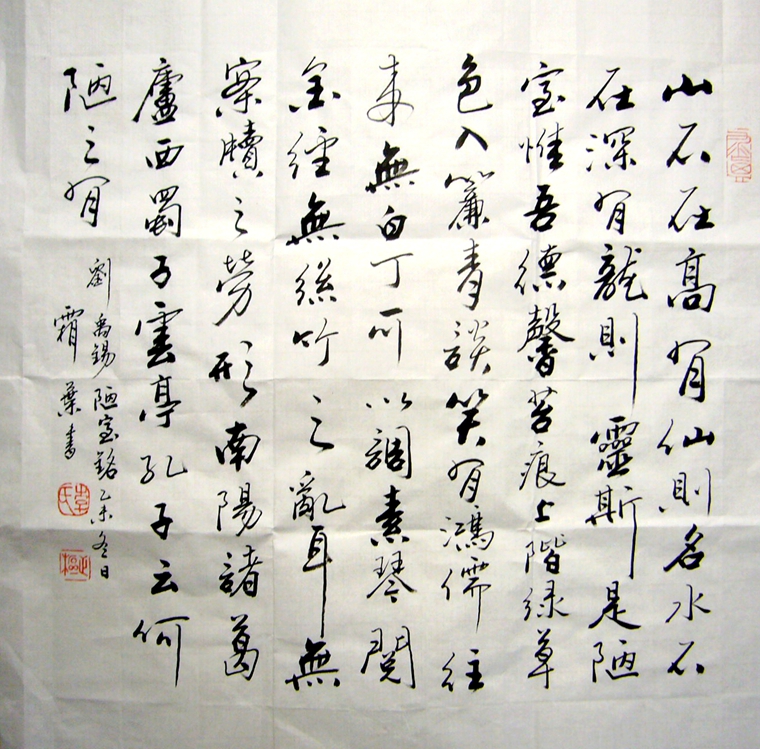 山不在高有仙則名水不
在深有龍則靈斯是陋
室惟吾德馨苔痕上階緑草
色入簾青談笑有鴻儒往
来無白丁可以調素琴閱
金經無絲竹之亂耳無
案牘之勞形南陽諸葛
廬西蜀子雲亭孔子云何
陋之有
劉禹錫陋室銘乙未冬日
霜葉書